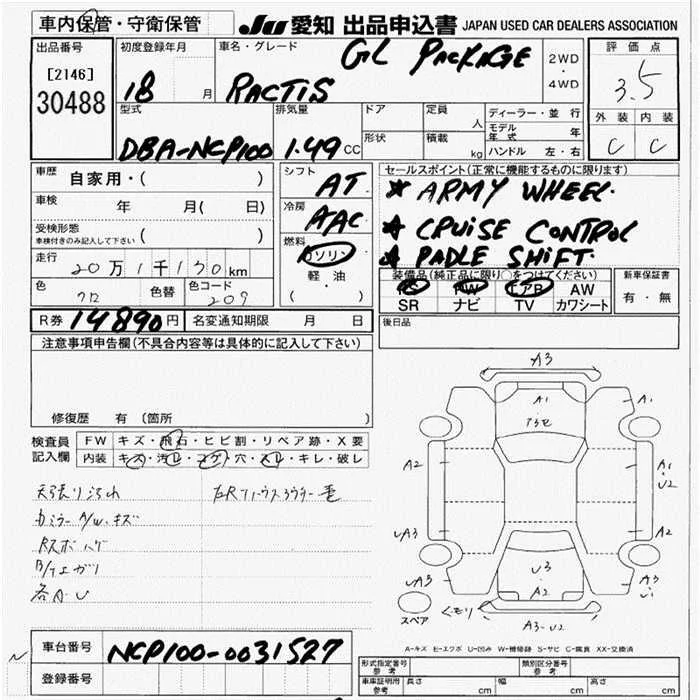 車内保管・守衛保管 JU 愛知 出品申込書 JAPAN USED CAR DEALERS ASSOCIATION
出品番号 初度登録年月 車名・グレード GL PACKAGE 2WD・4WD 評価点
[2146]
30488 18 月 RACTIS 3.5
型式 排気量 ドア 定員 人 ディーラー・並行 外装 内装
形状 積載 kg モデル年式 年
DBA-NCP100 1.49 CC ハンドル 左・右 C C
車歴 自家用・( ) シフト AT セールスポイント(正常に機能するものに限ります)
★ ARMY WHEEL.
車検 年 月( 日) 冷房 AAC ★ CRUISE CONTROL
受検形態 ( )
車検付きのみ記入して下さい 燃料 ガソリン ★ PADLE SHIFT.
走行 20万1千130km 軽・油 ( ) 装備品(純正品に限り○をつけてください) 新車保証書
PS PW エアB AW 有・無
色 クロ 色替 色コード 209 SR ナビ TV カワシート
R券 14890円 名変通知期限 月 日 後日品
注意事項申告欄(不具合内容等は具体的に記入して下さい)
修復歴 有 (箇所 )
検査員記入欄 FW キズ・飛石・ヒビ割・リペア跡・X要
内装 キズ・汚レ・コゲ・穴・スレ・キレ・破レ
天張り汚れ
カミラー A/W、キズ
Rスポ ハゲ
各A・U
A3
A1
A1
A2
A1・U2
UA3
A2
U3
A2
UA3
A3・U1
スペア
クモリ
A3-U2
A-キズ E-エクボ U-凹み W-補修跡 S-サビ C-腐食 XX-交換済
車台番号 NCP100-0031527
登録番号
形式指定番号 参考 類別区分番号 参考
車庫証明用 参考 長さ cm 幅 cm 高さ cm